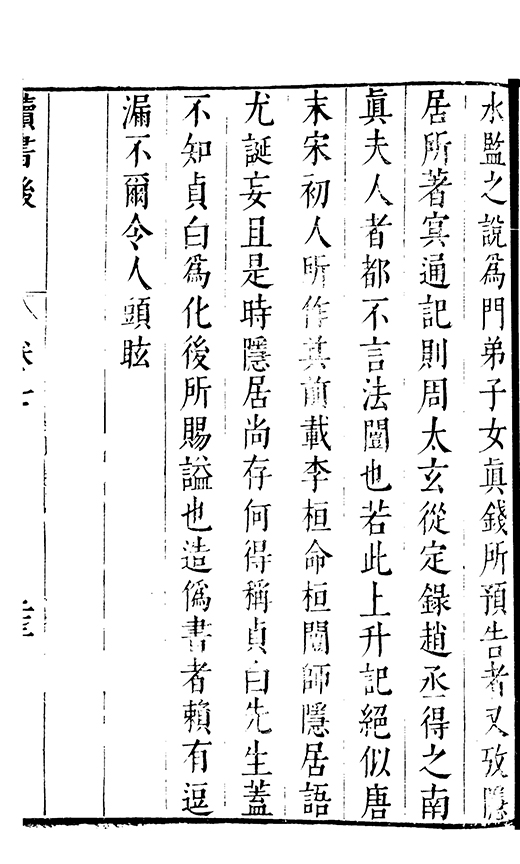 水監之說爲門弟子女眞錢所預告者又攷隱
居所著㝠通記則周太玄從定錄趙丞得之南
眞夫人者都不言法闓也若此上升記絕似唐
末宋初人所作其前載李桓命桓闓師隱居語
尤誕妄且是時隱居尚存何得稱貞白先生蓋
不知貞白爲化後所賜謚也造僞書者賴有逗
漏不爾令人頭眩
讀書後
卷七